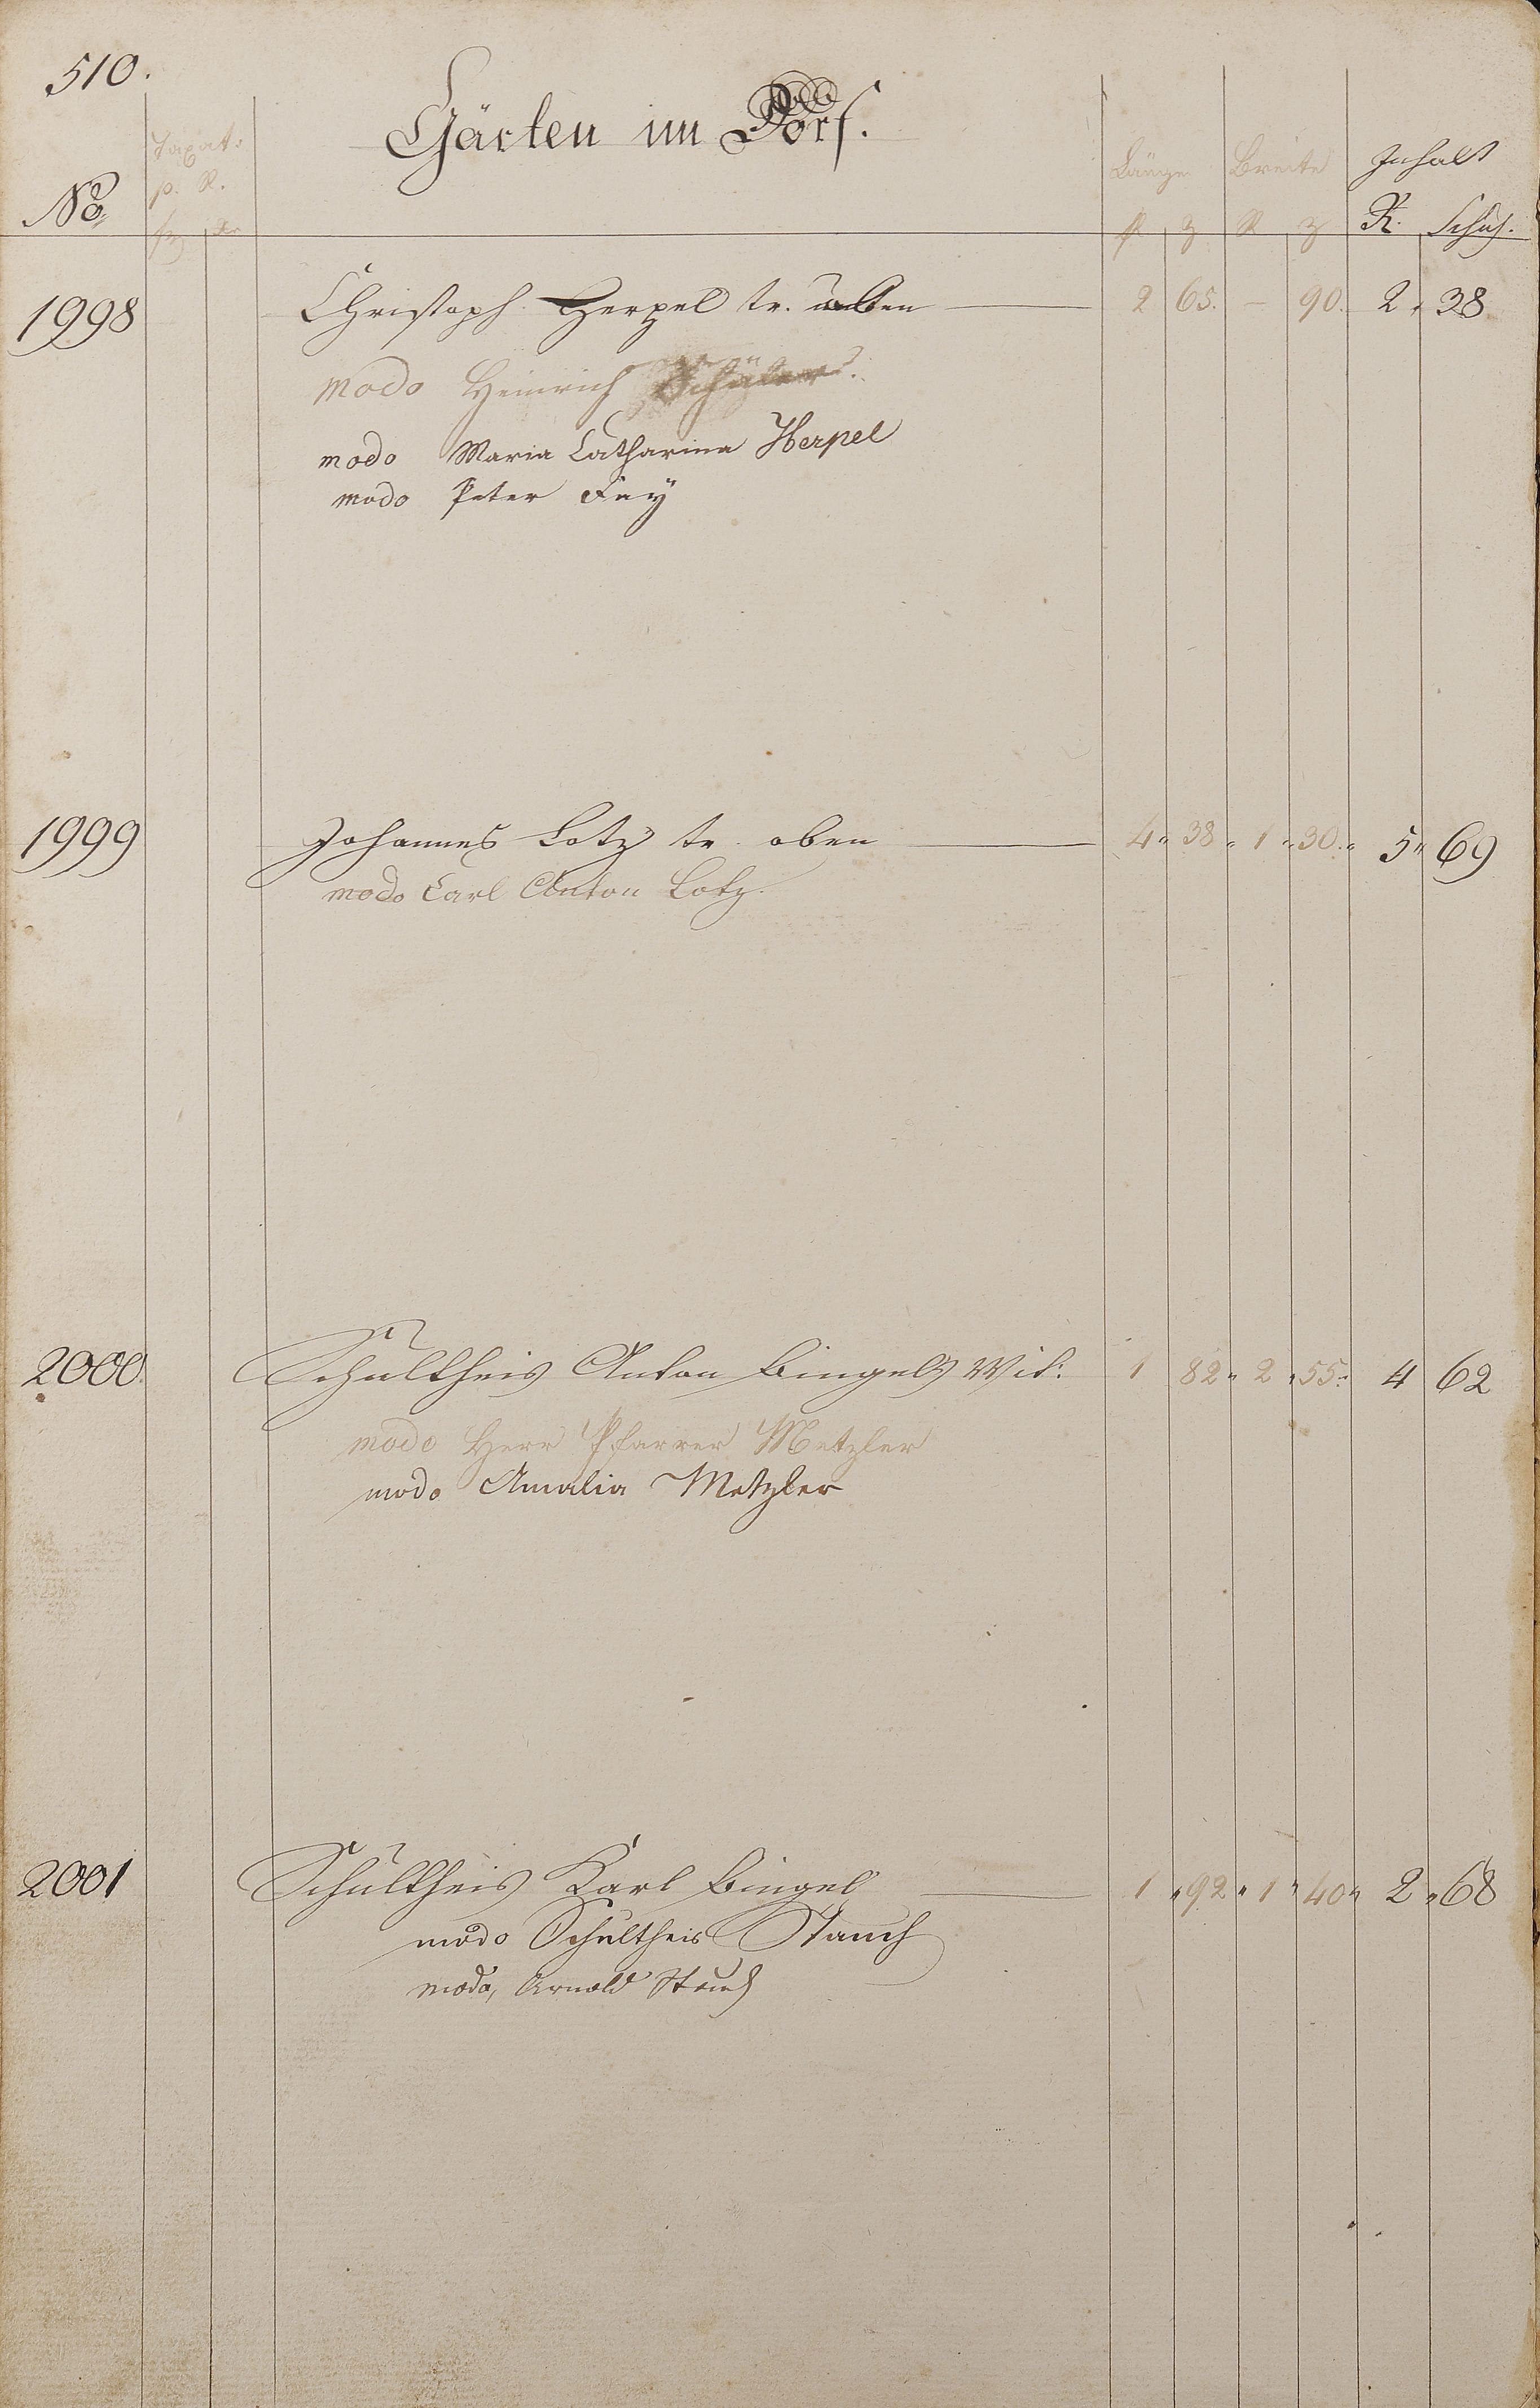 510.
Gärten im Dorf.
Taxat:
p. R.
No.
fl xr
Länge Breite Inhalt
R Z R Z R. Schuh.
1998 Christoph Herpel tr. oben 2 65. - 90. 2 " 38
modo Heinrich Schäfer.
modo Maria Catharina Herpel
modo Peter Fay
1999 Johannes Lotz tr. oben 4 " 38 " 1 " 30 " 5 " 69
modo Carl Anton Lotz.
2000. Schultheis Anton Bingels Wit: 1 82 " 2 " 55 " 4 62
modo Herr Pfarrer Metzler
modo Amalia Metzler
2001 Schultheis Karl Bingel 1 " 92 " 1 " 40 " 2 " 68
modo Schultheis Stauch
modo, Arnold Stauch